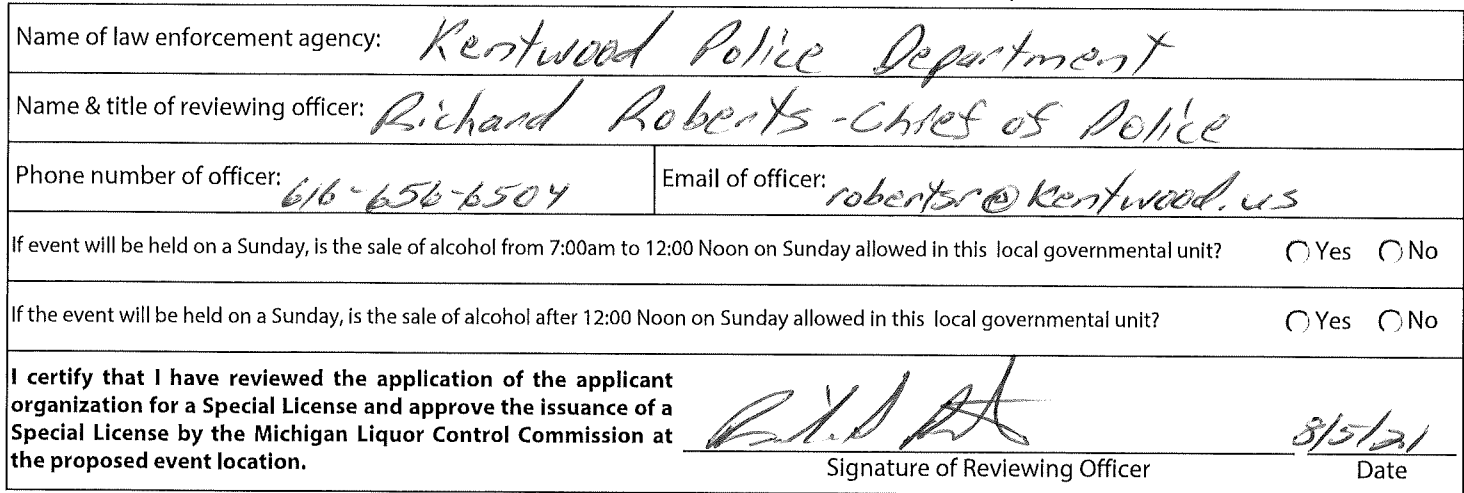 Name of law enforcement agency: Kentwood Police Department
Name & title of reviewing officer: Richard Roberts - Chief of Police
Phone number of officer: 616-656-6504 Email of officer: robertsr@kentwood.us
If event will be held on a Sunday, is the sale of alcohol from 7:00am to 12:00 Noon on Sunday allowed in this local governmental unit? Yes No
If the event will be held on a Sunday, is the sale of alcohol after 12:00 Noon on Sunday allowed in this local governmental unit? Yes No
I certify that I have reviewed the application of the applicant
organization for a Special License and approve the issuance of a
Special License by the Michigan Liquor Control Commission at
the proposed event location.
8/5/21
Signature of Reviewing Officer Date